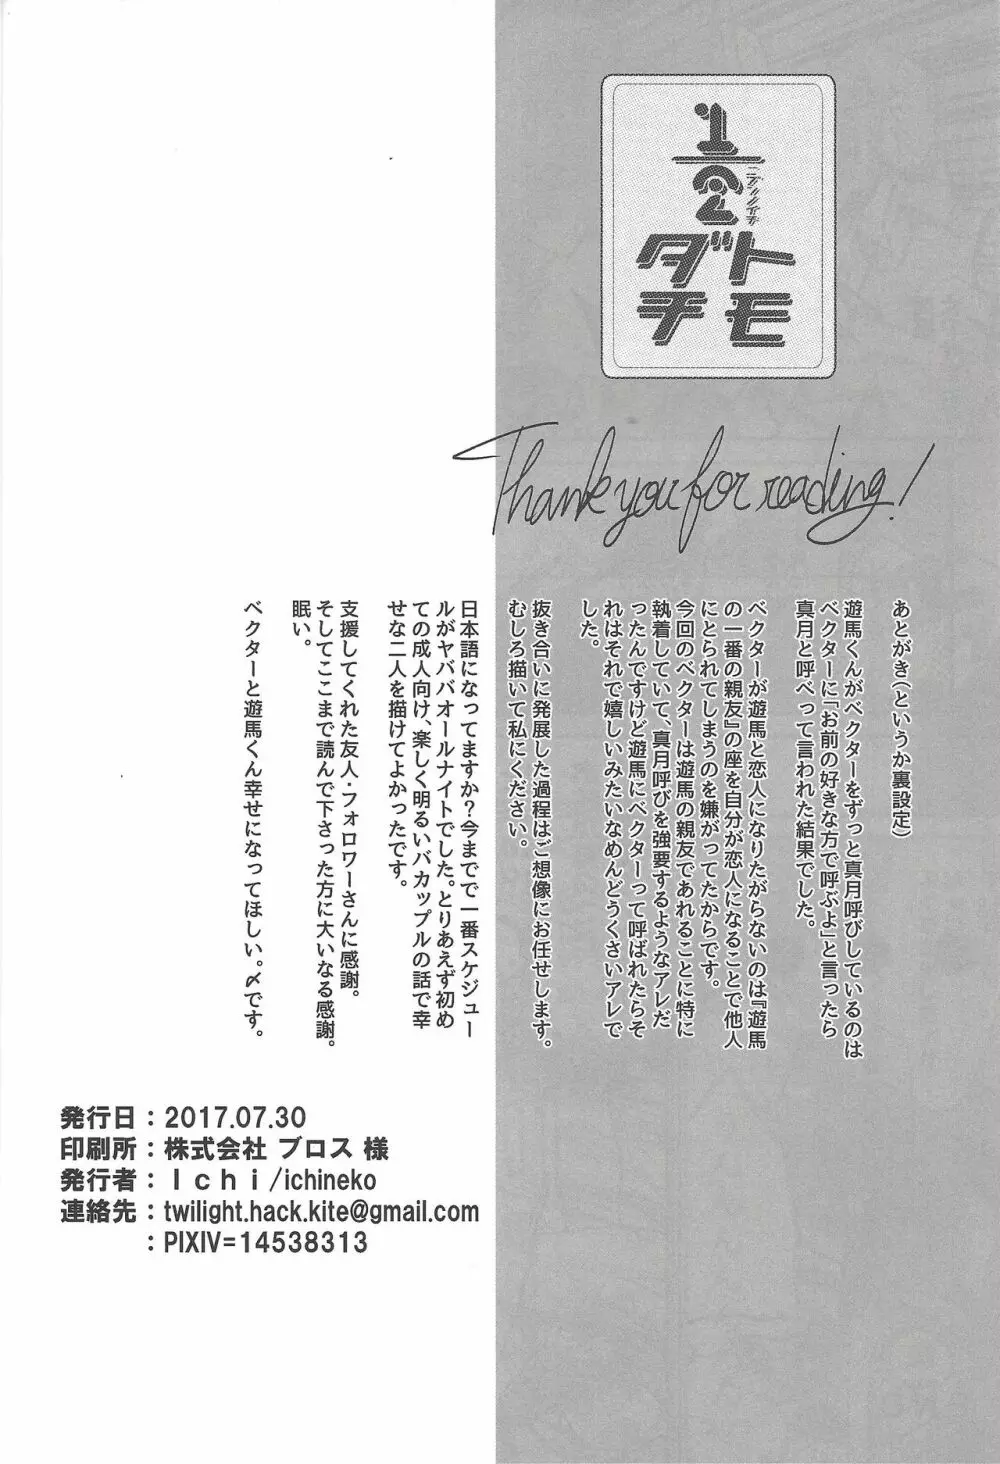 1/2
トモ
ダチ
Thank you for reading!
あとがき(というか裏設定)
遊馬くんがベクターをずっと真月呼びしているのは
ベクターに「お前の好きな方で呼ぶよ」と言ったら
真月と呼べって言われた結果でした。
ベクターが遊馬と恋人になりたがらないのは『遊馬
の一番の親友』の座を自分が恋人になることで他人
にとられてしまうのを嫌がってたからです。
今回のベクターは遊馬の親友であれることに特に
執着していて、真月呼びを強要するようなアレだ
ったんですけど遊馬にベクターって呼ばれたらそ
れはそれで嬉しいみたいなめんどうくさいアレで
した。
抜き合いに発展した過程はご想像にお任せします。
むしろ描いて私にください。
日本語になってますか?今までで一番スケジュー
ルがヤババオールナイトでした。とりあえず初め
ての成人向け、楽しく明るいバカップルの話で幸
せな二人を描けてよかったです。
支援してくれた友人・フォロワーさんに感謝。
そしてここまで読んで下さった方に大いなる感謝。
眠い。
ベクターと遊馬くん幸せになってほしい。〆です。
発行日：2017.07.30
印刷所：株式会社 ブロス 様
発行者：Ｉｃｈｉ/ichineko
連絡先：twilight.hack.kite@gmail.com
：PIXIV=14538313